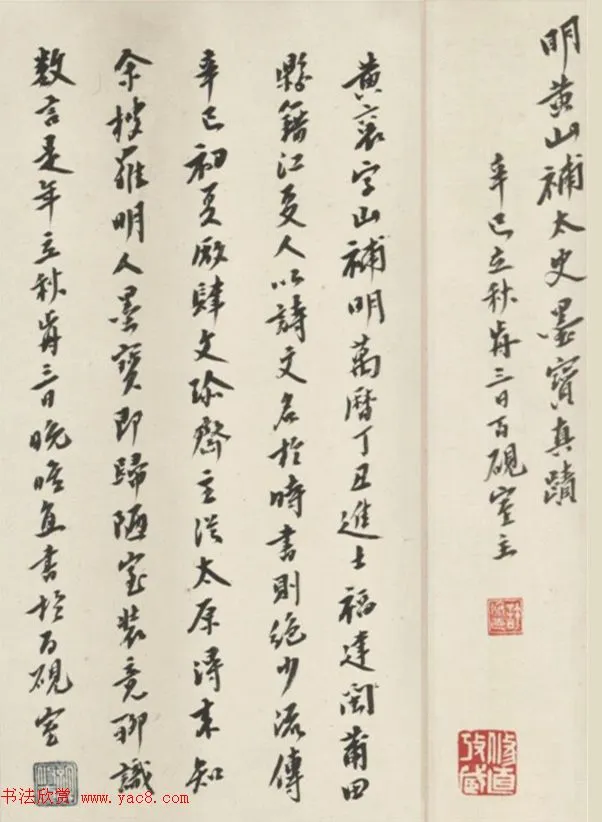 明黄山補太史墨寶真蹟
辛巳立秋歬三日百硯室主
黄袞字山補明萬曆丁丑進士福建閩莆田
縣籍江夏人以詩文名於時書則絶少流傳
辛巳初夏厰肆文珍齋主從太原得来知
余搜羅明人墨寶即歸陋室裝竟聊識
數言是年立秋歬三日晚晴直書於百硯室
修直攷藏
书法欣赏 www.yac8.com